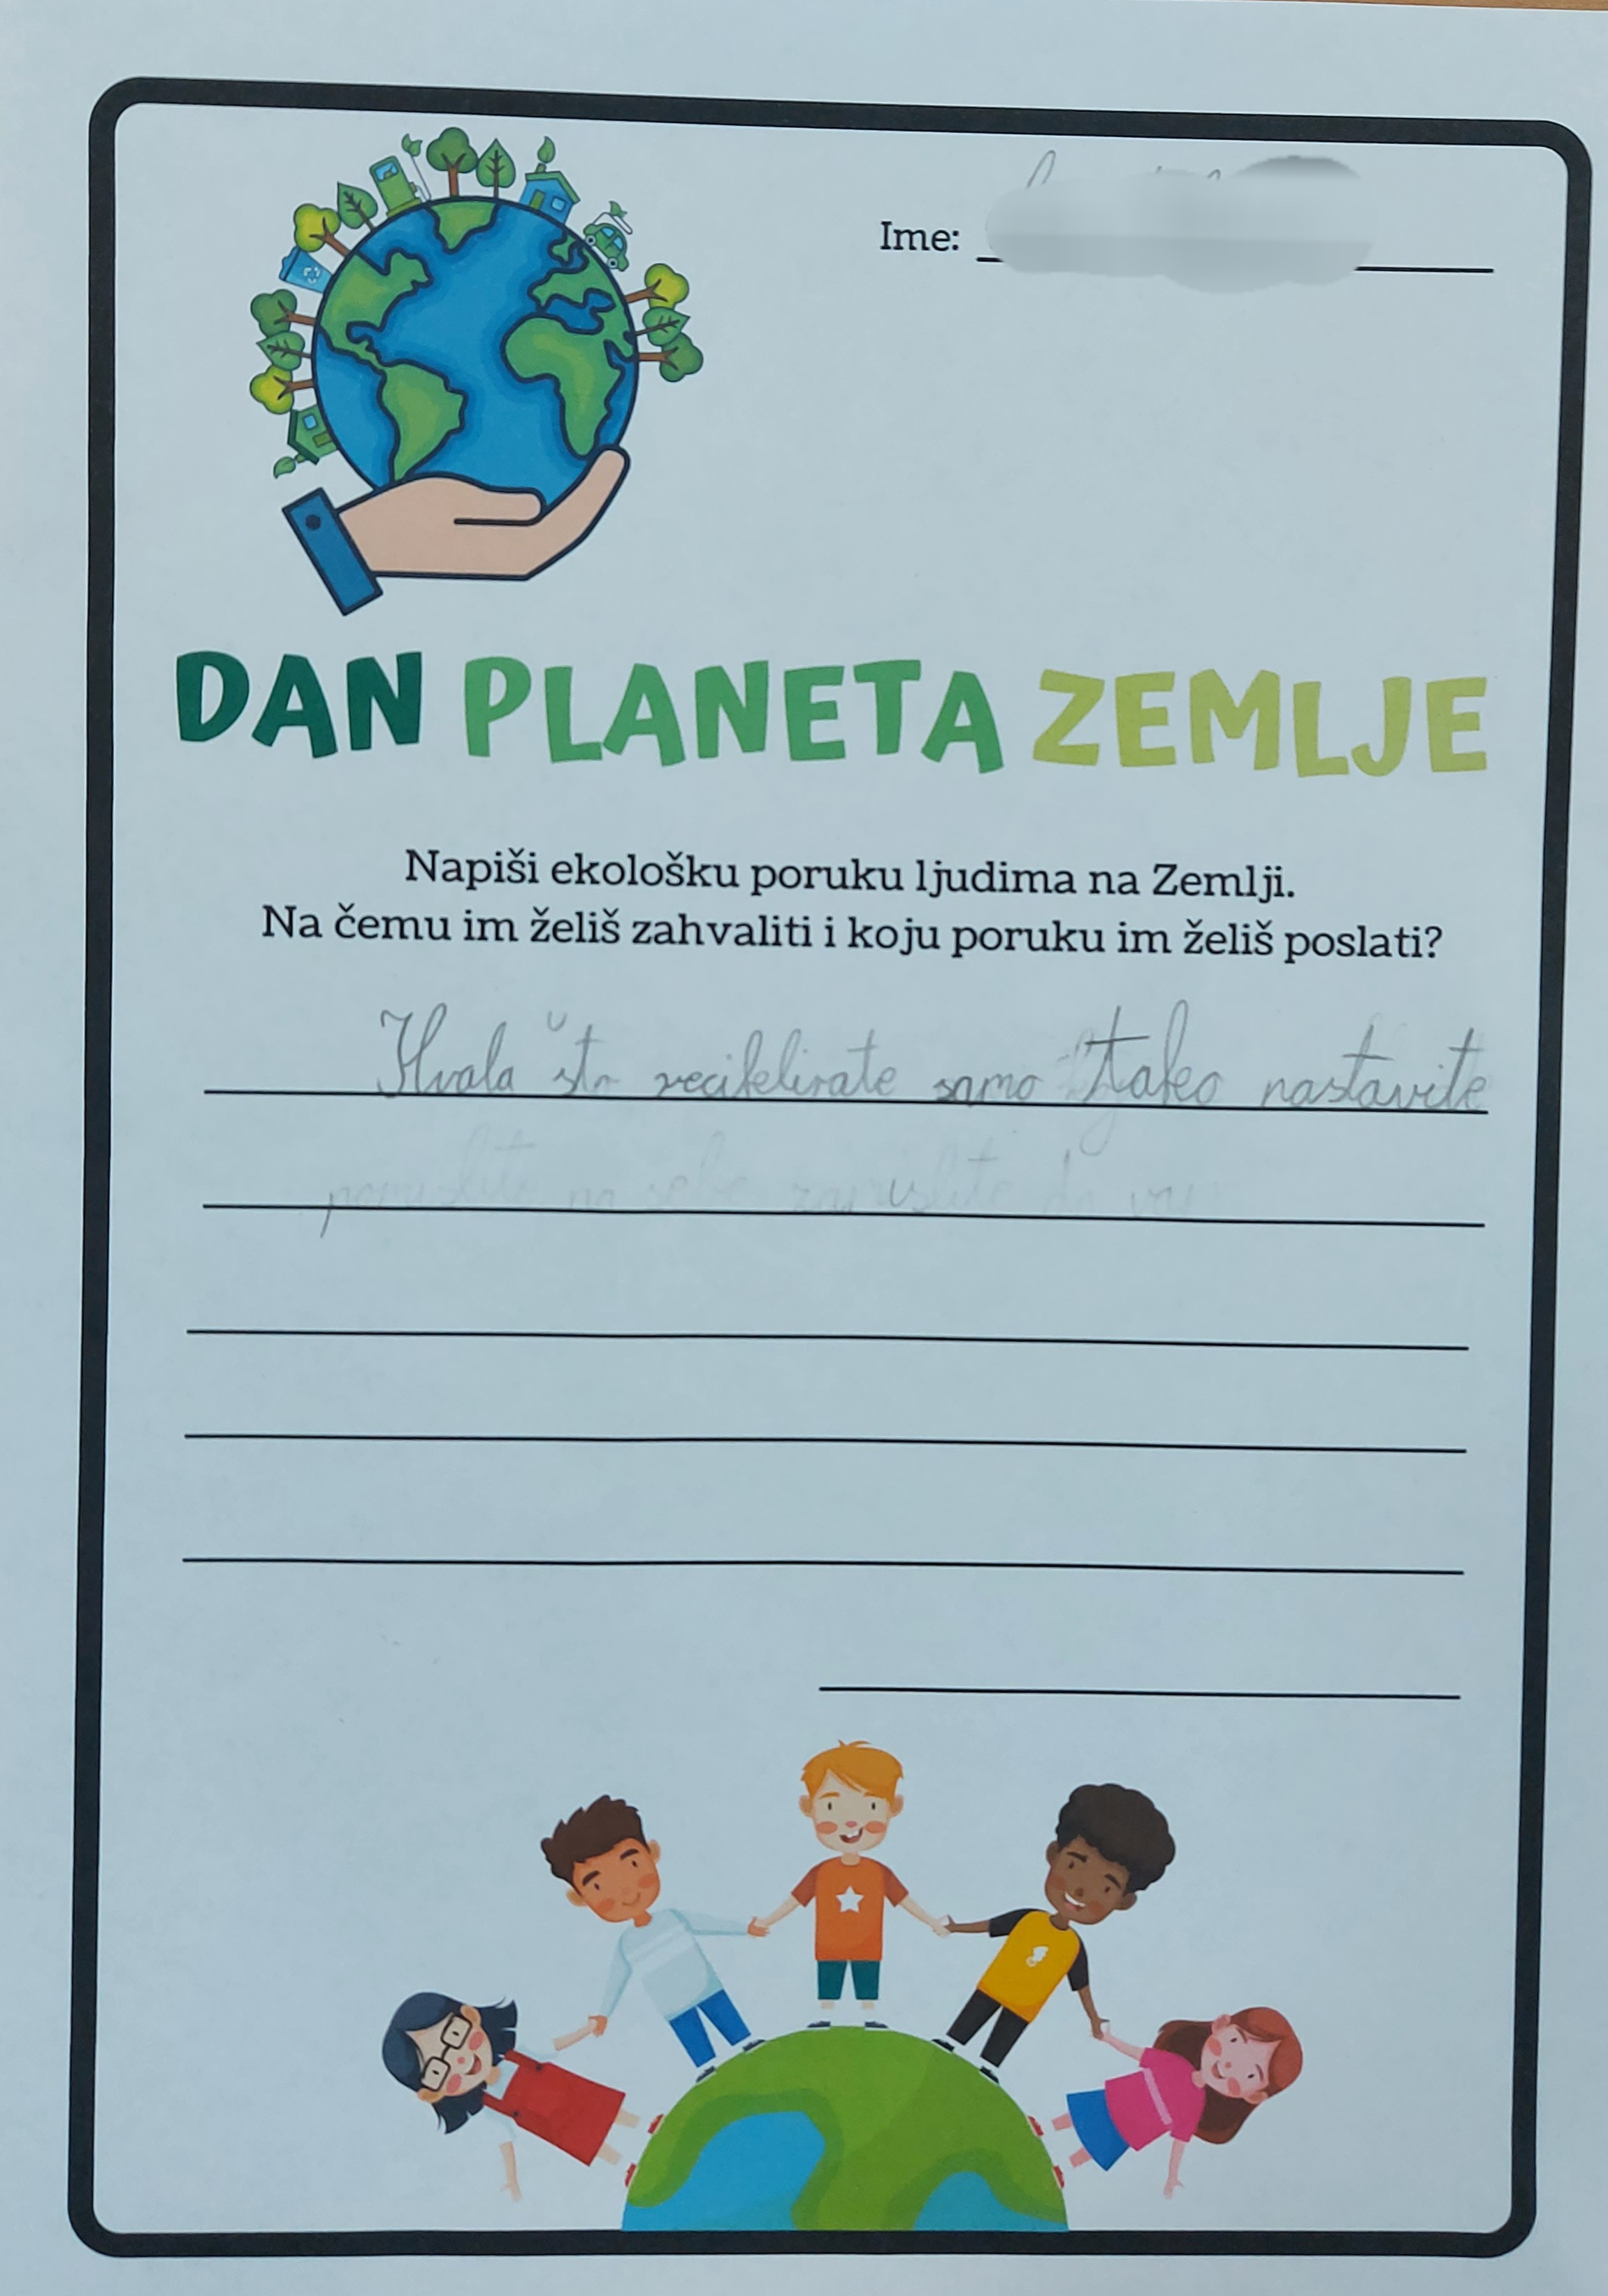 Ime:
DAN PLANETA ZEMLJE
Napiši ekološku poruku ljudima na Zemlji.
Na čemu im želiš zahvaliti i koju poruku im želiš poslati?
Hvala što recikelirate samo tako nastavite
na sebe